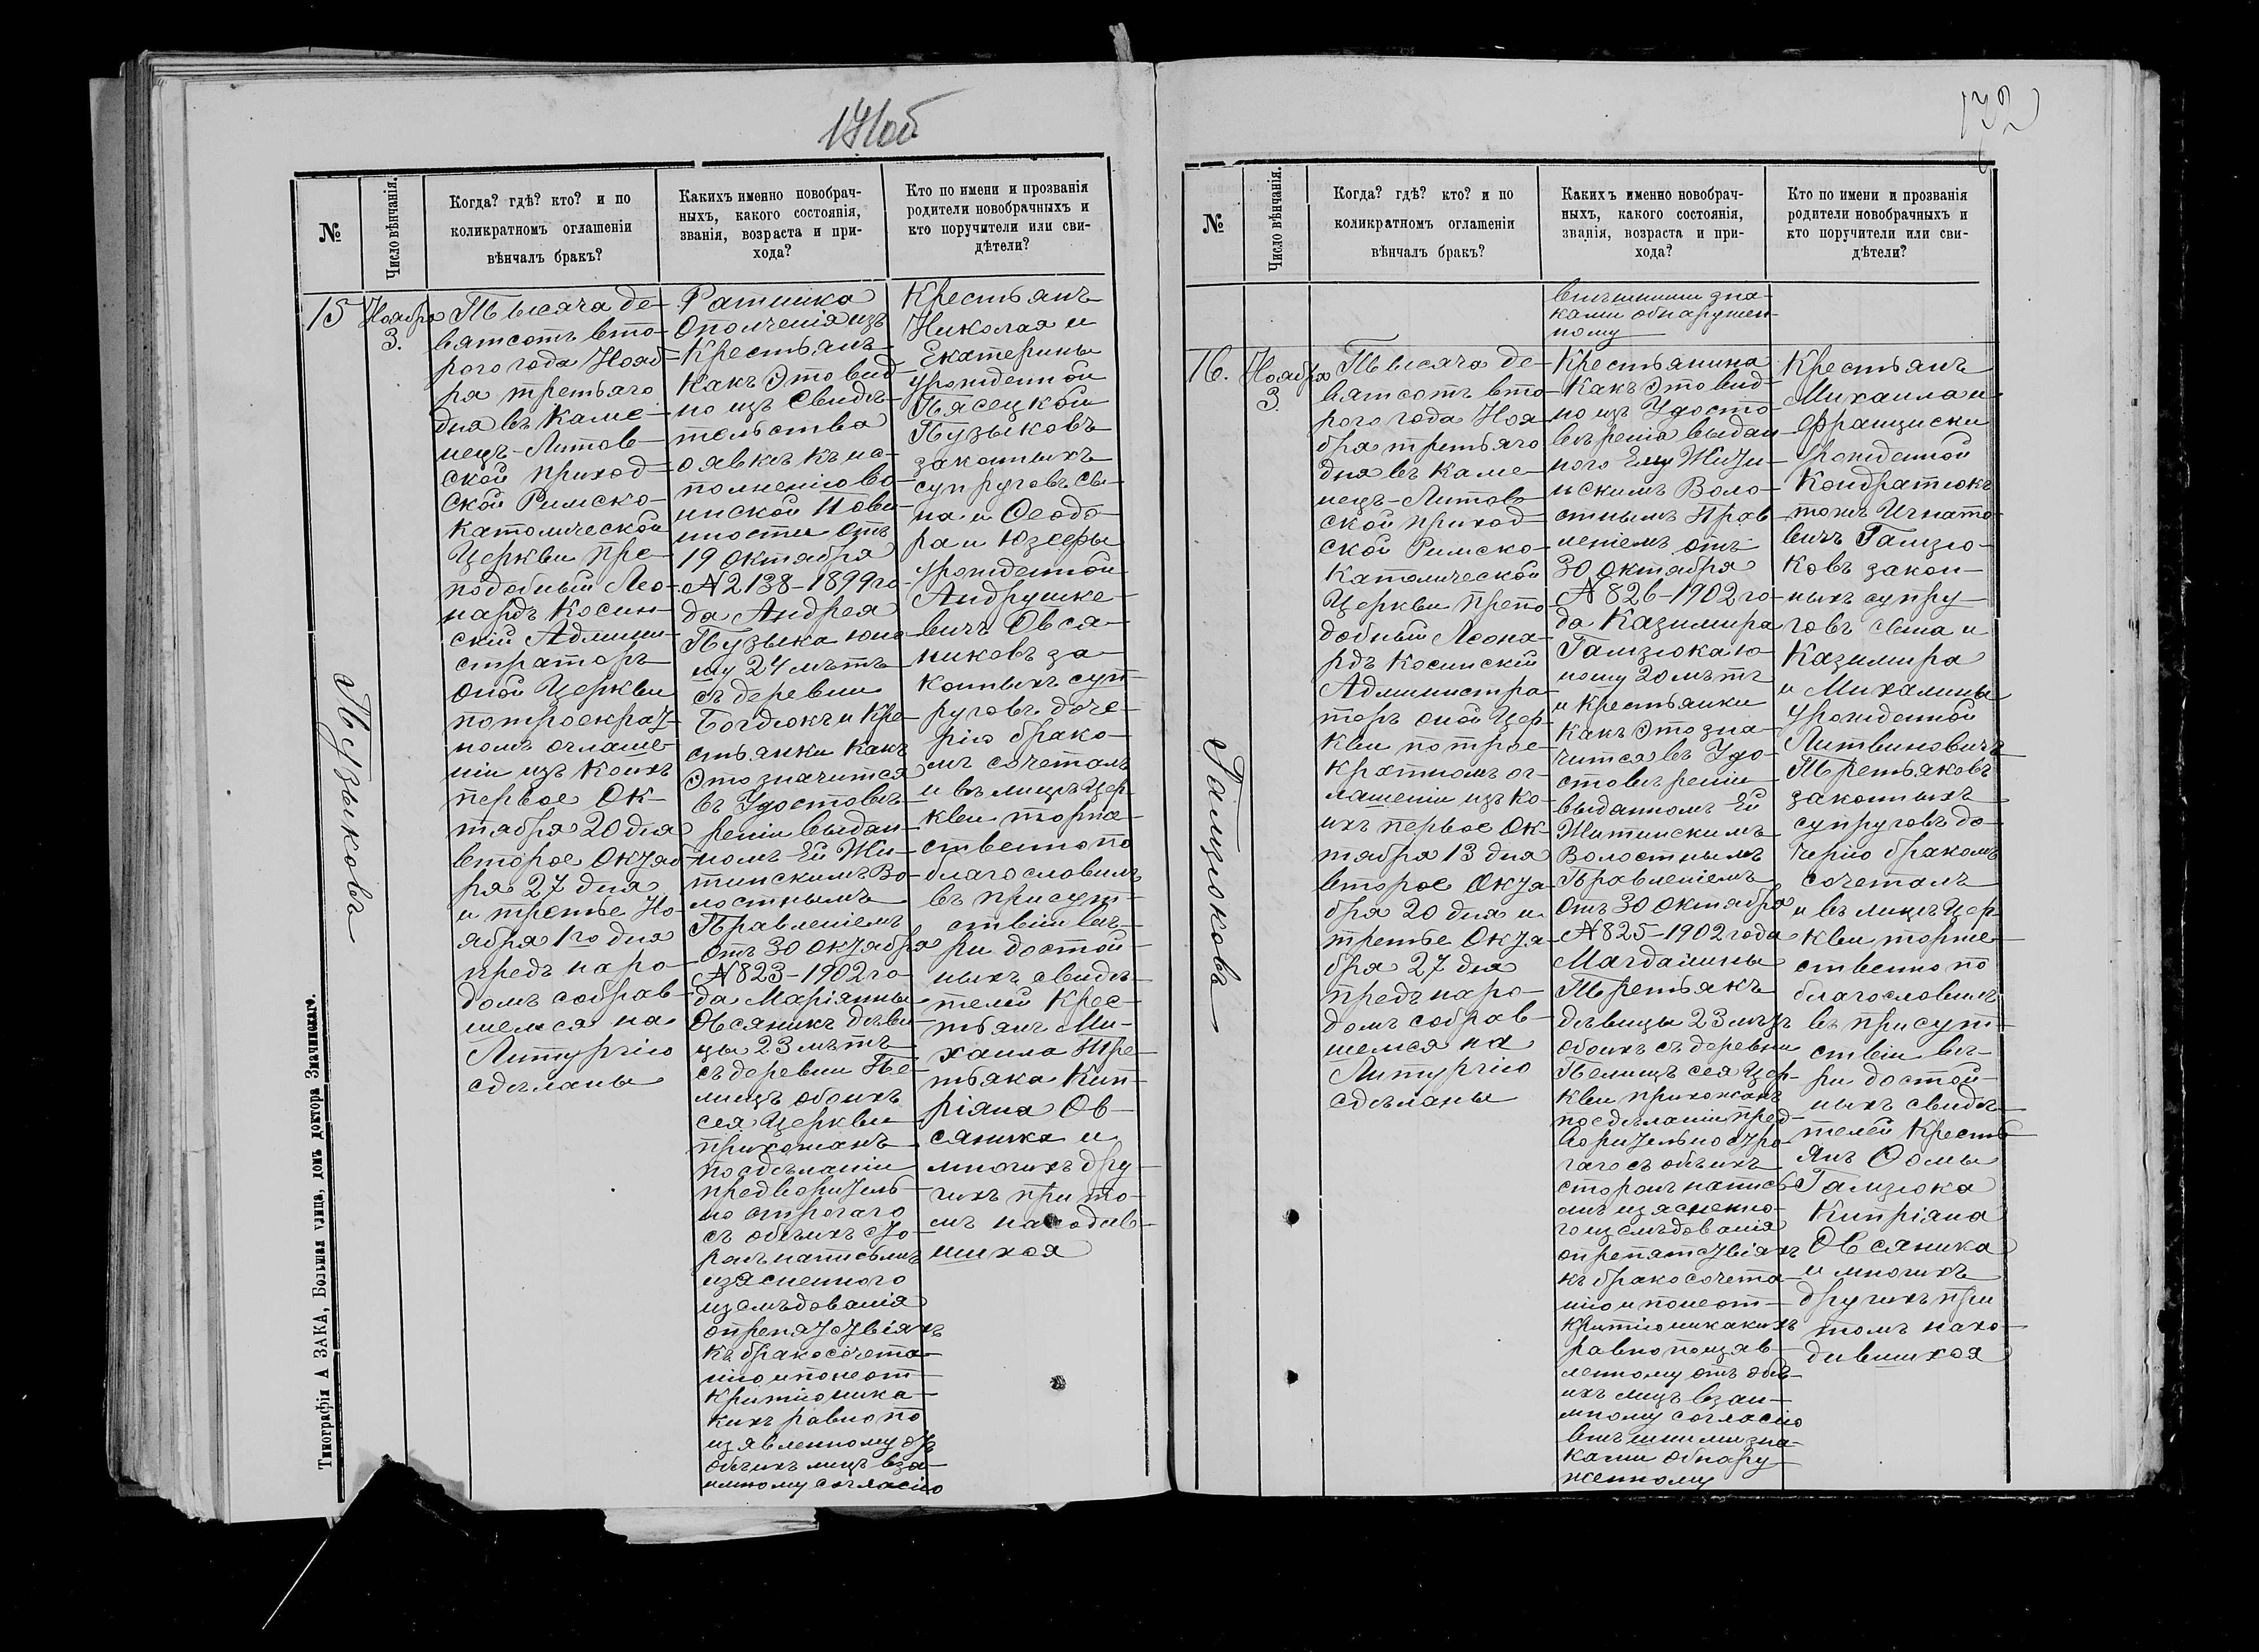 132
№
Число вѣнчанія.
Когда? гдѣ? кто? и по
коликратномъ оглашеніи
вѣнчалъ бракъ?
Какихъ именно новобрач-
ныхъ, какого состоянія,
званія, возраста и при-
хода?
Кто по имени и прозванія
родители новобрачныхъ и
кто поручители или сви-
дѣтели?
15
Ноября
3.
Пузыковъ
Тысяча де-
вятсотъ вто-
рого года Нояб-
ря третьяго
дня въ Каме-
нецъ-Литов-
ской приход-
ской Римско-
Католической
Церкви Пре-
подобный Лео-
нардъ Косин-
скій Админи-
страторъ
оной Церкви
по троекраз-
номъ оглаше-
ніи изъ коихъ
первое Ок-
тября 20 дня
второе Октяб-
ря 27 дня
и третье Но-
ября 1го дня
предъ наро-
домъ собрав-
шемся на
Литургію
сдѣланы
Ратника
Ополченія изъ
Крестьянъ
Какъ Это вид-
но изъ Свидѣ-
тельства
о явкѣ къ ис-
полненію во-
инской Пови-
нности отъ
19 Октября
№ 2138-1899 го-
да Андрея
Пузыка юно-
шу 24 лѣтъ
съ деревни
Богдюкъ и Кре-
стьянки Какъ
Это значится
въ Удостовѣ-
реніи выдан-
номъ Ей Жи-
тинскимъ Во-
лостнымъ
Правленіемъ
отъ 30 Октября
№ 823-1902 го-
да Маріянны
Овсяникъ дѣви-
цы 23 лѣтъ
съ деревни Пе-
лищъ обоихъ
сея Церкви
прихожанъ
по сдѣланіи
предворитель-
но строгаго
съ обѣихъ сто-
ронъ написьмѣ
изясненного
изслѣдованія
о препятствіяхъ
къ бракосочета-
нію и по неот-
крытію ника-
кихъ равно по
изявленному отъ
обѣихъ лицъ вза-
имному согласію
Крестьянъ
Николая и
Екатерины
урожденной
Пясецкой
Пузыковъ
законныхъ
супруговъ сы-
на и Ѳеодо-
ра и Юзефы
урожденной
Андрушке-
вичъ Овся-
никовъ за-
конныхъ суп-
руговъ доче-
рію брако-
мъ сочеталъ
и въ лицѣ Цер-
кви торже-
ственно по
благословилъ
въ присут-
ствіи вѣ-
ри достой-
ныхъ свидѣ-
телей Крес-
тьянъ Ми-
хаила Тре-
тьяка Кип-
ріяна Ов-
сяника и
многихъ дру-
гихъ при то-
мъ находив-
шихся
Типографія А ЗАКА, Большая улица, домъ доктора Значинскаго.
№
Число вѣнчанія.
Когда? гдѣ? кто? и по
коликратномъ оглашеніи
вѣнчалъ бракъ?
Какихъ именно новобрач-
ныхъ, какого состоянія,
званія, возраста и при-
хода?
Кто по имени и прозванія
родители новобрачныхъ и
кто поручители или сви-
дѣтели?
внѣшними зна-
ками обнаружен-
ному
16.
Ноября
3.
Гализюковъ
Тысяча де-
вятсотъ вто-
рого года Ноя-
бря третьяго
дня въ Каме-
нецъ-Литов-
ской приход-
ской Римско-
Католической
Церкви Препо-
добный Леона-
рдъ Косинскій
Администра-
торъ оной Цер-
кви по трое-
кратномъ ог-
лашеніи изъ ко-
ихъ первое Ок-
тября 13 дня
второе Октя-
бря 20 дня и
третье Октя-
бря 27 дня
предъ наро-
домъ собрав-
шемся на
Литургію
сдѣланы
Крестьянина
Какъ Это вид-
но изъ Удосто-
вѣренія выдан-
ного Ему Жити-
нскимъ Воло-
стнымъ Прав-
леніемъ отъ
30 Октября
№ 826-1902 го-
да Казимира
Гализюка ю-
ношу 20 лѣтъ
и Крестьянки
Какъ Это зна-
чится въ Удо-
стовѣреніи
выданномъ Ей
Житинскимъ
Волостнымъ
Правленіемъ
отъ 30 Октября
№ 825-1902 года
Магдалины
Третьякъ
дѣвицы 23 лѣтъ
обоихъ съ деревни
Пелищъ сея Цер-
кви прихожанъ
по сдѣланіи пред-
ворительно стро-
гаго съ обѣихъ
сторонъ напись-
мѣ изясненно-
го изслѣдованія
о препятствіяхъ
къ бракосочета-
нію и по неот-
крытію никакихъ
равно по изяв-
ленному отъ обѣ-
ихъ лицъ взаи-
мному согласію
внѣшними зна-
ками обнару-
женному
Крестьянъ
Михаила и
Францишки
урожденной
Кондратюкъ
тожъ Игнато-
вичъ Гализю-
ковъ закон-
ныхъ супру-
говъ сына и
Казимира
и Михалины
урожденной
Литвиновичъ
Третьяковъ
законныхъ
супруговъ до-
черію бракомъ
сочеталъ
и въ лицѣ Цер-
кви торже-
ственно по
благословилъ
въ присут-
ствіи вѣ-
ри достой-
ныхъ свидѣ-
телей Кресть-
янъ Ѳомы
Гализюка
Кипріяна
Овсяника
и многихъ
другихъ при
томъ нахо-
дившихся